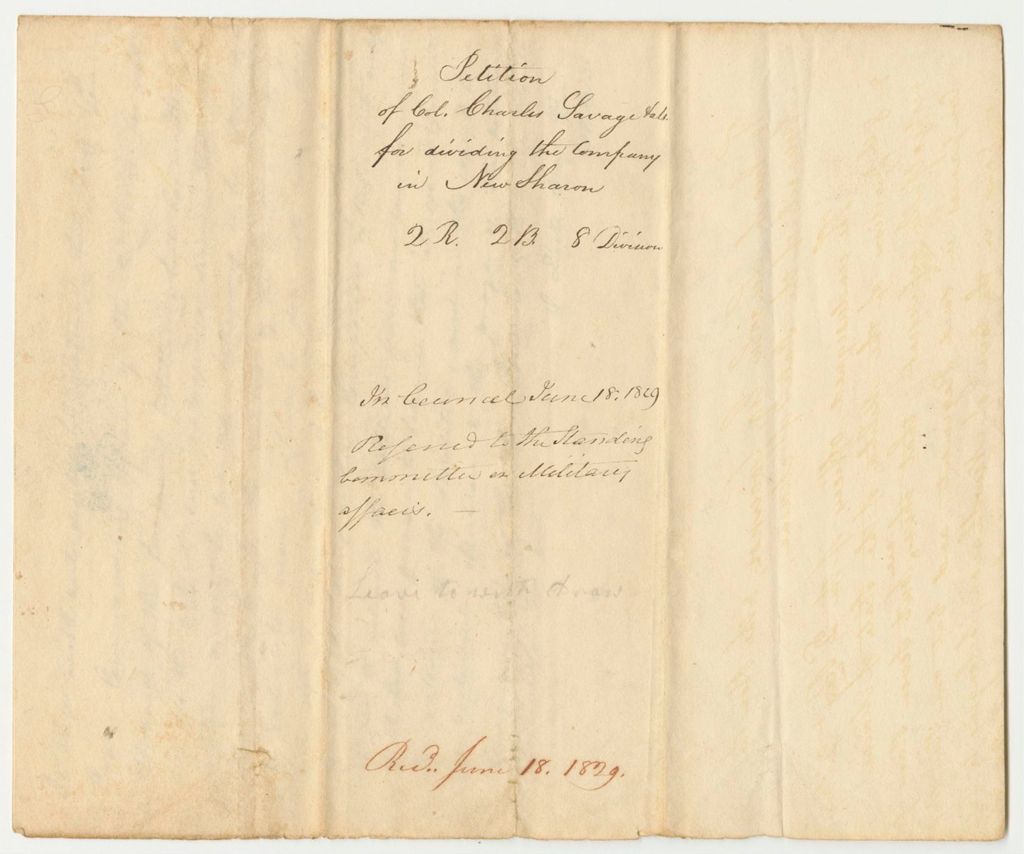 Petition
of Col. Charles Savage & als.
for dividing the Company
in New Sharon
2 R. 2 B. 8 Division
In Council June 18. 1829
Referred to the Standing
Committee on Military
affairs. —
Leave to with draw
Recd. June 18. 1829.